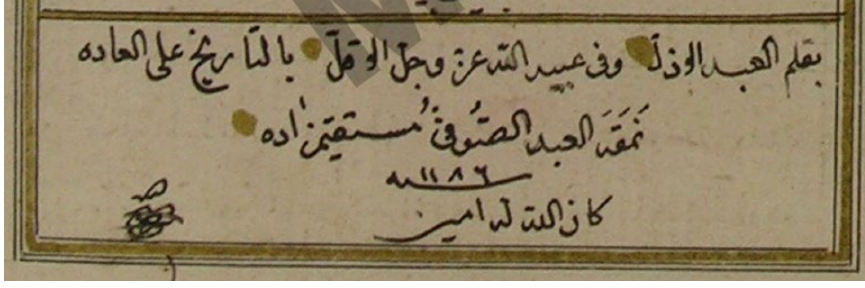 بقلم العبد الاذل وفى عبيد الله عز وجل الاقل بالتاريخ على العاده
نمقه العبد الصوفى مستقيمزاده
سنه ١١٨٦
كان الله له امين